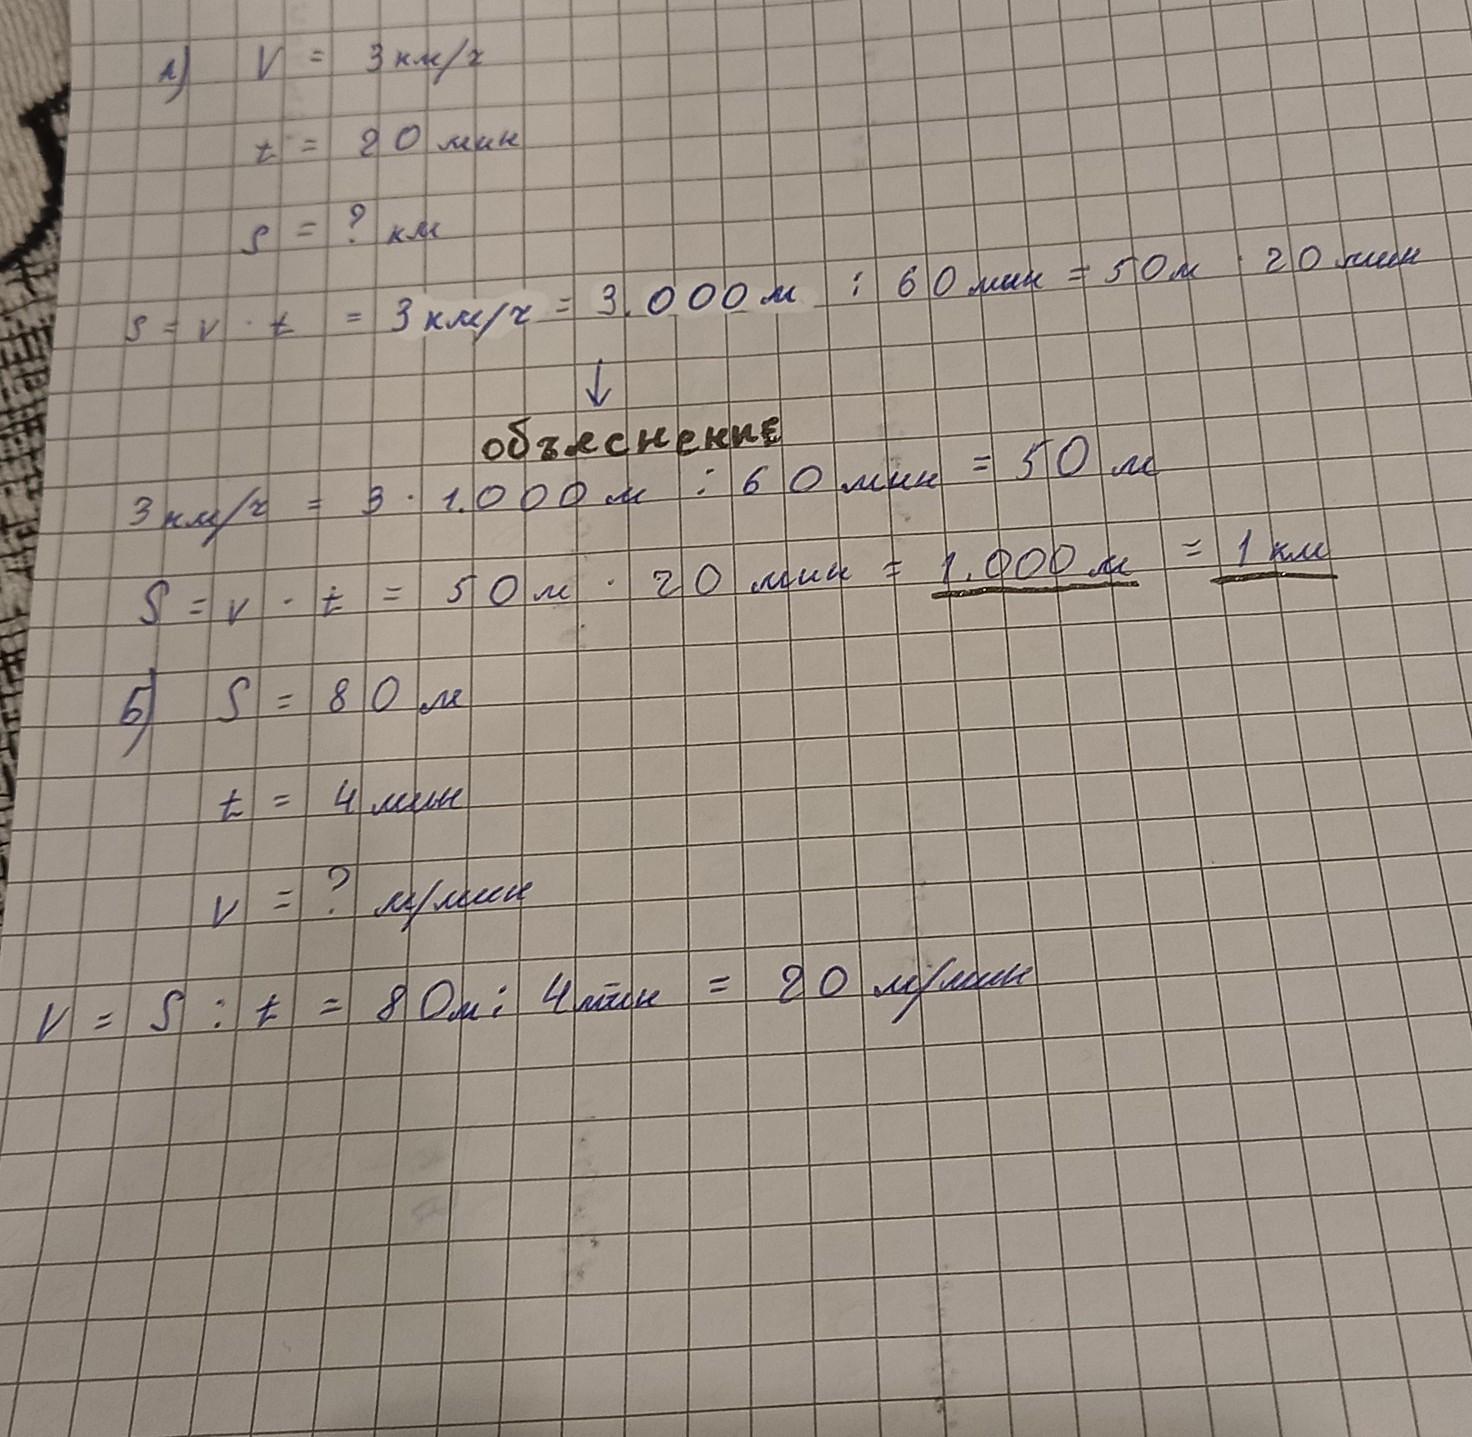 а) V = 3 км/ч
t = 20 мин
S = ? км
S = v · t = 3 км/ч = 3.000 м : 60 мин = 50 м · 20 мин
↓
объяснение
3 км/ч = 3 · 1.000 м : 60 мин = 50 м
S = v · t = 50 м · 20 мин = 1.000 м = 1 км
б) S = 80 м
t = 4 мин
v = ? м/мин
V = S : t = 80 м : 4 мин = 20 м/мин